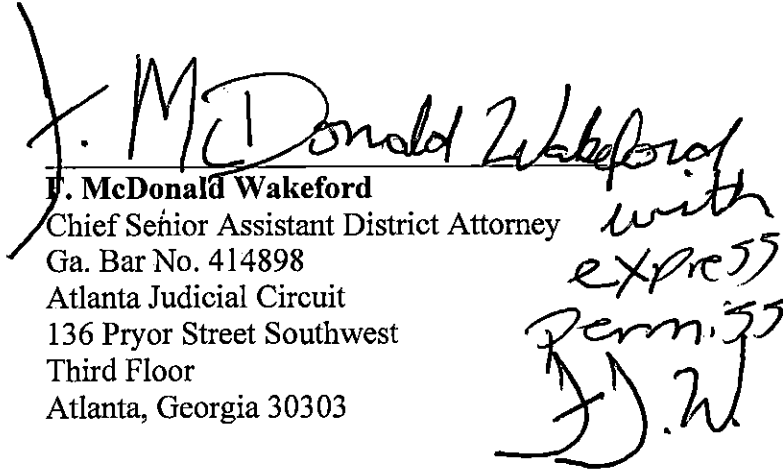 F. McDonald Wakeford
with
express
permiss
F. McDonald Wakeford
Chief Senior Assistant District Attorney
Ga. Bar No. 414898
Atlanta Judicial Circuit
136 Pryor Street Southwest
Third Floor
Atlanta, Georgia 30303